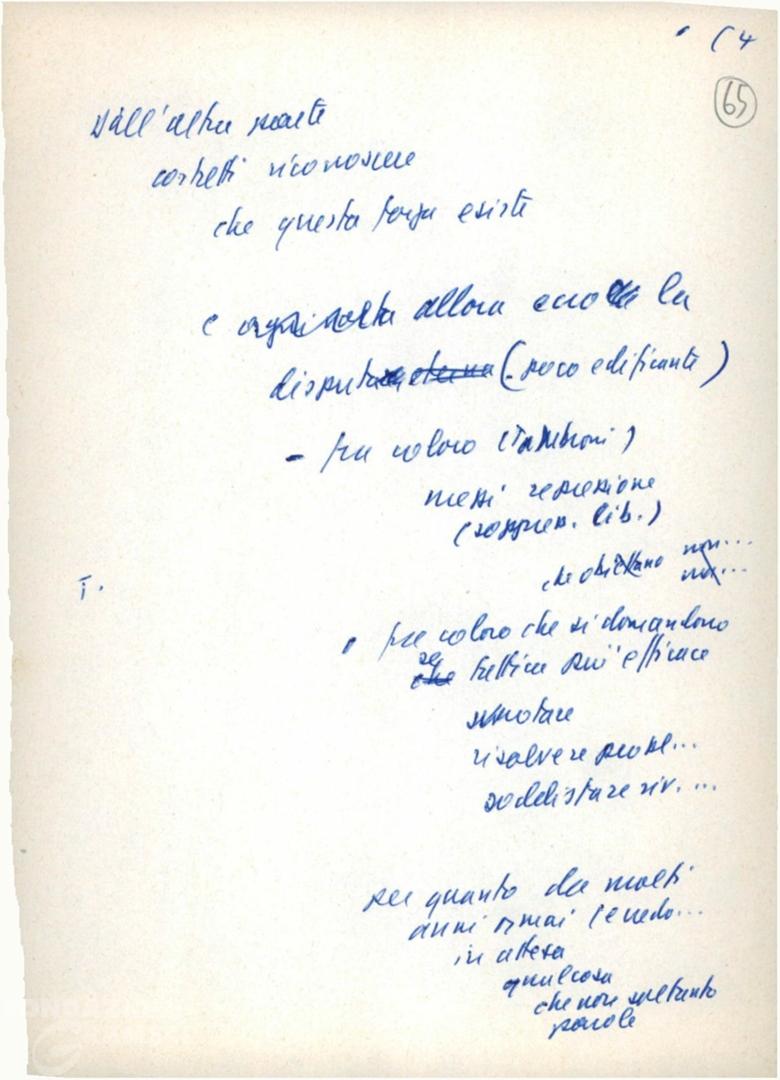 (4
65
Dall'altra parte
costretti riconoscere
che questa forza esiste
e ogni volta allora ecco la
disputa eterna (poco edificante)
- fra coloro (Tambroni)
mezzi repressione
(soppres. lib.)
che obiettano non...
non...
T.
fra coloro che si domandono
se
che tattica più efficace
svuotare
risolvere probl...
soddisfare riv. ...
per quanto da molti
anni ormai (e vedo...
in attesa
qualcosa
che non soltanto
parole